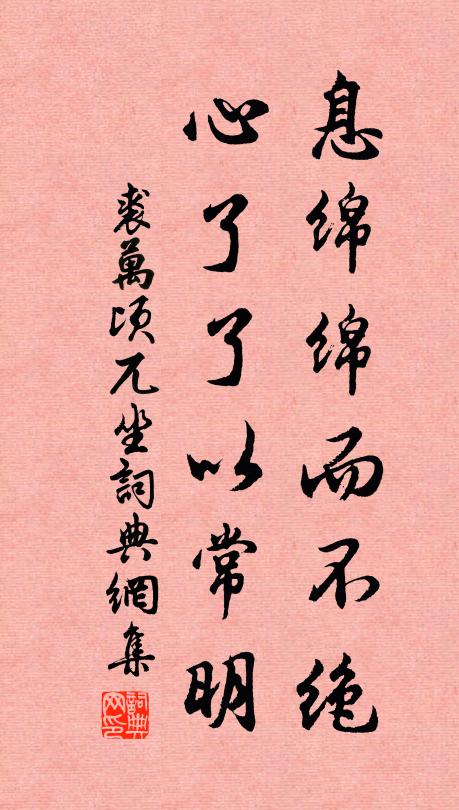 息绵绵而不绝
心了了以常明
裘萬顷兀坐詞典網集
詞典网印